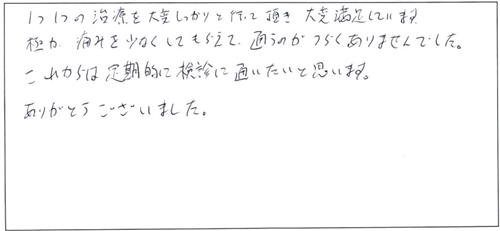 1つ1つの治療を大変しっかりと行って頂き大変満足しています
極力、痛みを少なくしてもらえて、通うのがつらくありませんでした。
これからは定期的に検診に通いたいと思います。
ありがとうございました。